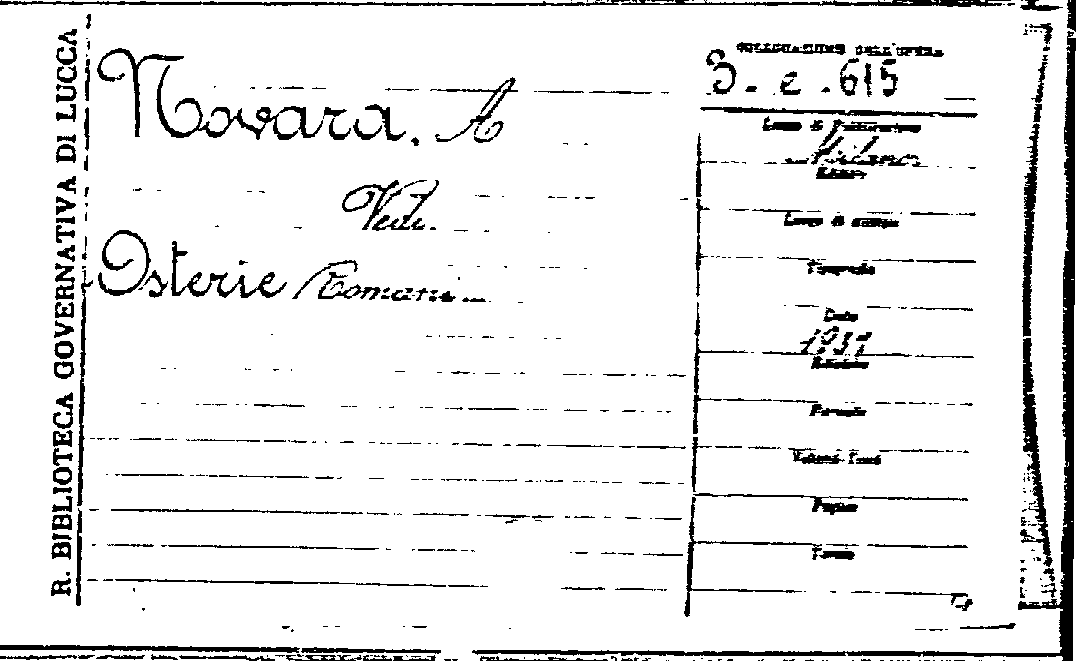 R. BIBLIOTECA GOVERNATIVA DI LUCCA
Novara, A
Vedi.
Osterie Romane
COLLOCAZIONE DELL'OPERA
3. e. 615
Luogo di Pubblicazione
Milano
Editore
Luogo di stampa
Tipografia
Data
1937
Edizione
Formato
Volumi-Tomi
Pagine
Tavole